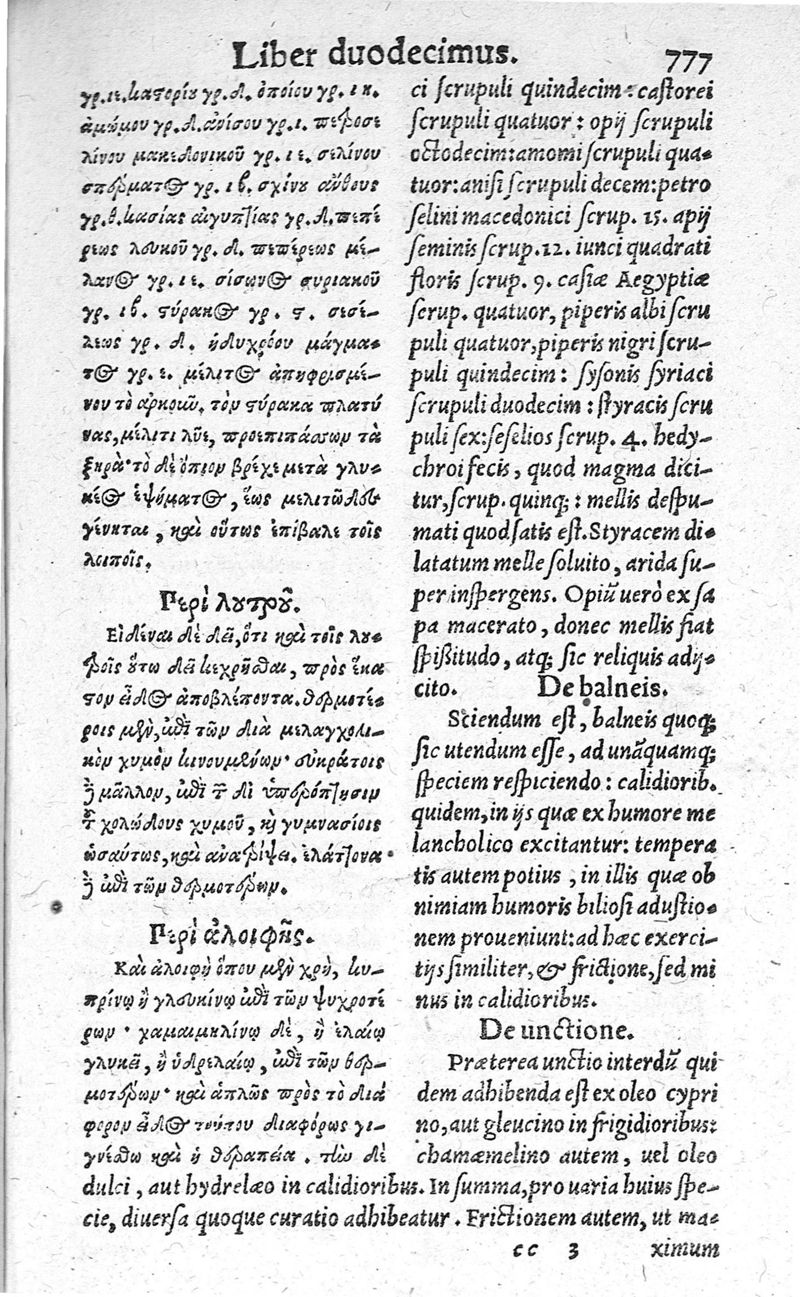 Liber duodecimus. 777
γρ.ιε.καστορίου γρ.δ. ὀπίου γρ. ιη.
ἀμώμου γρ.δ.ἀνίσου γρ.ι. πετροσε
λίνου μακεδονικοῦ γρ. ιε. σελίνου
σπέρματος γρ. ιβ. σχίνου ἄνθους
γρ.θ.κασίας αἰγυπτίας γρ.δ.πεπέ
ρεως λευκοῦ γρ. δ. πεπέρεως μέ-
λανος γρ. ιε. σίσωνος συριακοῦ
γρ. ιβ. στύρακος γρ. ϛ. σεσέ-
λεως γρ. δ. ἡδυχρόου μάγμα-
τος γρ. ε. μέλιτος ἀπηφρισμέ-
νου τὸ ἀρκοῦν. τὸν στύρακα πλατύ
νας, μέλιτι λῦε, προεπιπάσσων τὰ
ξηρὰ· τὸ δὲ ὄπιον βρέχε μετὰ γλυ-
κέος ἑψήματος, ἕως μελιτῶδες
γένηται, καὶ οὕτως ἐπίβαλε τοῖς
λοιποῖς.
Περὶ λουτροῦ.
Εἰδέναι δὲ δεῖ, ὅτι καὶ τοῖς λου-
τροῖς οὕτω δεῖ κεχρῆσθαι, πρὸς ἕκα
στον εἶδος ἀποβλέποντα. θερμοτέ-
ροις μὲν, ἐπὶ τῶν διὰ μελαγχολι-
κὸν χυμὸν κινουμένων· εὐκράτοις
ἢ μᾶλλον, ἐπὶ τῶν δι' ὑπερόπτησιν
τοῦ χολώδους χυμοῦ, καὶ γυμνασίοις
ὡσαύτως, καὶ ἀνατρίψει. ἐλάττονα
ἢ ἐπὶ τῶν θερμοτέρων.
Περὶ ἀλοιφῆς.
Καὶ ἀλοιφῇ ὅπου μὲν χρὴ, κυ-
πρίνῳ ἢ γλευκίνῳ ἐπὶ τῶν ψυχροτέ
ρων· χαμαιμηλίνῳ δὲ, ἢ ἐλαίῳ
γλυκεῖ, ἢ ὑδρελαίῳ, ἐπὶ τῶν θερ-
μοτέρων· καὶ ἁπλῶς πρὸς τὸ διά
φορον εἶδος τούτου διαφόρως γι-
γνέσθω καὶ ἡ θεραπεία. τὴν δὲ
ci scrupuli quindecim: castorei
scrupuli quatuor: opij scrupuli
octodecim: amomi scrupuli qua-
tuor: anisi scrupuli decem: petro
selini macedonici scrup. 15. apij
seminis scrup. 12. iunci quadrati
floris scrup. 9. casiæ Aegyptiæ
scrup. quatuor, piperis albi scru
puli quatuor, piperis nigri scru-
puli quindecim: sysonis syriaci
scrupuli duodecim: styracis scru
puli sex: seselios scrup. 4. hedy-
chroi fecis, quod magma dici-
tur, scrup. quinq;: mellis despu-
mati quod satis est. Styracem di-
latatum melle soluito, arida su-
per inspergens. Opiũ uerò ex sa
pa macerato, donec mellis fiat
spißitudo, atq; sic reliquis adij-
cito. De balneis.
Sciendum est, balneis quoq;
sic utendum esse, ad unãquamq;
speciem respiciendo: calidiorib.
quidem, in ijs quæ ex humore me
lancholico excitantur: tempera
tis autem potius, in illis quæ ob
nimiam humoris biliosi adustio-
nem proueniunt: ad hæc exerci-
tijs similiter, & frictione, sed mi
nus in calidioribus.
De unctione.
Præterea unctio interdũ qui
dem adhibenda est ex oleo cypri
no, aut gleucino in frigidioribus:
chamæmelino autem, uel oleo
dulci, aut hydrelæo in calidioribus. In summa, pro uaria huius spe-
cie, diuersa quoque curatio adhibeatur. Frictionem autem, ut ma-
cc 3 ximum